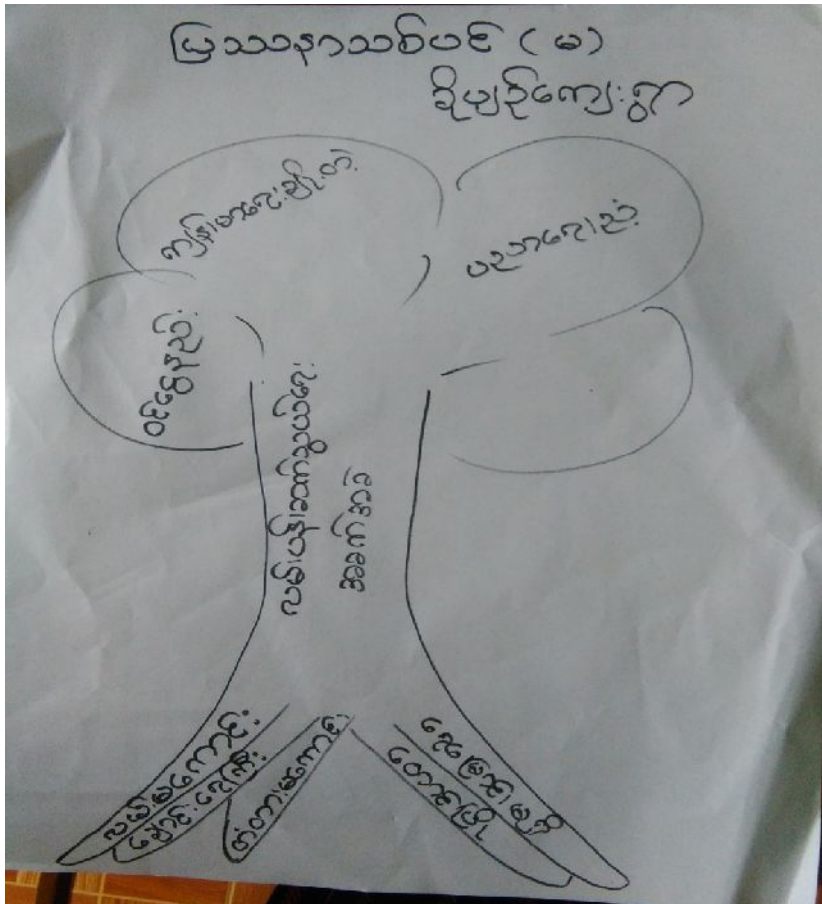 ပြဿနာသစ်ပင် ( မ )
ခိုပျဉ်ကျေးရွာ
ကျန်းမာရေးချို့တဲ့
ပညာရေးညံ့
ဝင်ငွေနည်း
လမ်းပန်းဆက်သွယ်ရေး
အခက်အခဲ
လမ်းမကောင်း
ချောင်းရေကြီး
တံတားမကောင်း
တောင်ပြို